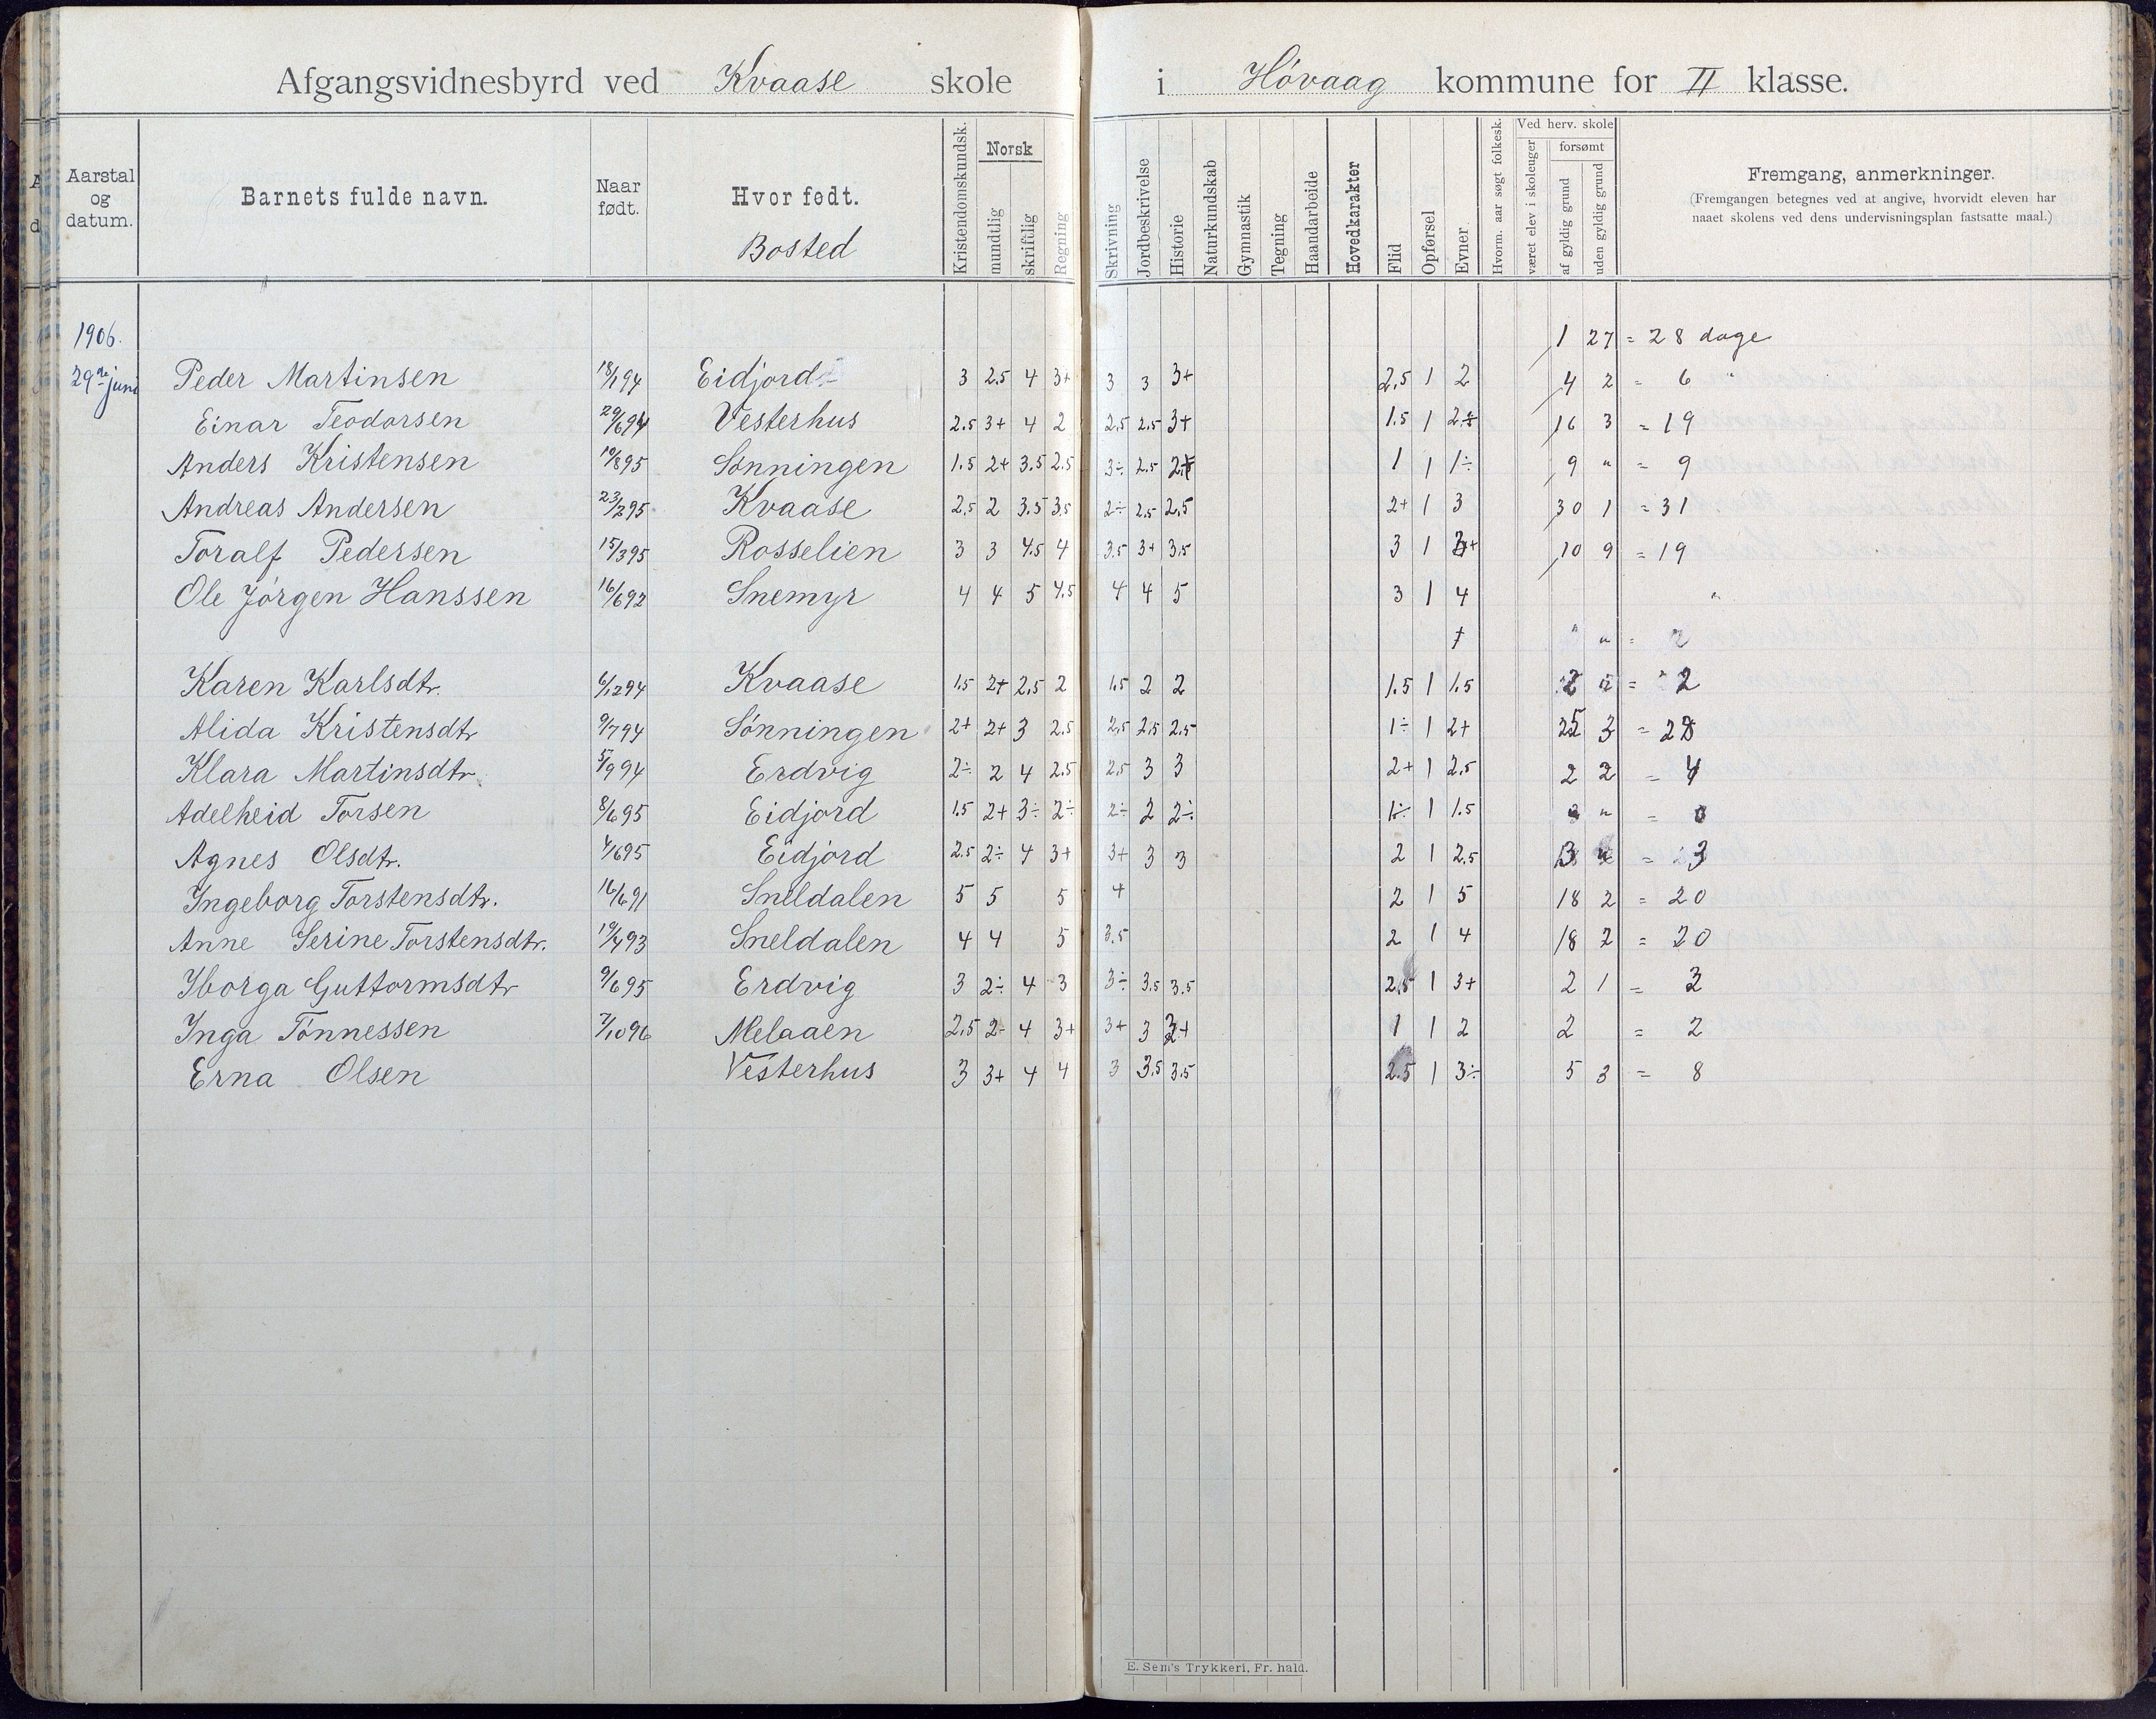 Afgangsvidnesbyrd ved Kvaase skole i Høvaag kommune for II klasse.
Aarstal og datum.
Barnets fulde navn.
Naar født.
Hvor født.
Bosted
Kristendomskundsk.
Norsk
mundtlig
skriftlig
Regning
Skrivning
Jordbeskrivelse
Historie
Naturkundskab
Gymnastik
Tegning
Haandarbeide
Hovedkarakter
Flid
Opførsel
Evner
Hvorm. aar søgt folkesk.
Ved herv. skole
været elev i skoleuger
forsømt
af gyldig grund
uden gyldig grund
Fremgang, anmerkninger.
(Fremgangen betegnes ved at angive, hvorvidt eleven har
naaet skolens ved dens undervisningsplan fastsatte maal.)
1906. 1 27 = 28 dage
29de juni Peder Martinsen 18/1 94 Eidjord 3 2.5 4 3+ 3 3 3+ 2.5 1 2 4 2 = 6 "
Einar Teodorsen 29/6 94 Vesterhus 2.5 3+ 4 2 2.5 2.5 3+ 1.5 1 16 3 = 19
Anders Kristensen 10/8 95 Sønningen 1.5 2+ 3.5 2.5 3÷ 2.5 1 1 1÷ 9 " = 9
Andreas Andersen 23/2 95 Kvaase 2.5 2 3.5 3.5 2÷ 2.5 2.5 2+ 1 3 30 1 = 31
Toralf Pedersen 15/3 95 Rosselien 3 3 4.5 4 3.5 3+ 3.5 3 1 10 9 = 19
Ole Jørgen Hanssen 16/6 92 Snemyr 4 4 5 4.5 4 4 5 3 1 4 "
" " =
Karen Karlsdtr. 6/12 94 Kvaase 1.5 2+ 2.5 2 1.5 2 2 1.5 1 1.5 2 " = 2
Alida Kristensdtr 9/7 94 Sønningen 2+ 2+ 3 2.5 2.5 2.5 2.5 1÷ 1 2+ 25 3 = 28
Klara Martinsdtr 5/9 94 Erdvig 2÷ 2 4 2.5 2.5 3 3 2+ 1 2.5 2 2 = 4
Adelheid Torsen 8/6 95 Eidjord 1.5 2+ 3÷ 2÷ 2÷ 2 2÷ 1÷ 1 1.5 " = 0
Agnes Olsdtr. 4/6 95 Eidjord 2.5 2÷ 4 3+ 3+ 3 3 2 1 2.5 3 " = 3
Ingeborg Torstensdtr. 16/6 91 Sneldalen 5 5 5 4 2 1 5 18 2 = 20
Anne Serine Torstensdtr. 19/4 93 Sneldalen 4 4 5 3.5 2 1 4 18 2 = 20
Yborga Guttormsdtr 9/6 95 Erdvig 3 2÷ 4 3 3÷ 3.5 3.5 2.5 1 3+ 2 1 = 3
Inga Tønnessen 7/10 96 Melaaen 2.5 2÷ 4 3+ 3+ 3 3+ 1 1 2 2 = 2
Erna Olsen Vesterhus 3 3+ 4 4 3 3.5 3.5 2.5 1 3÷ 5 3 = 8
E. Sem's Trykkeri, Fr. hald.